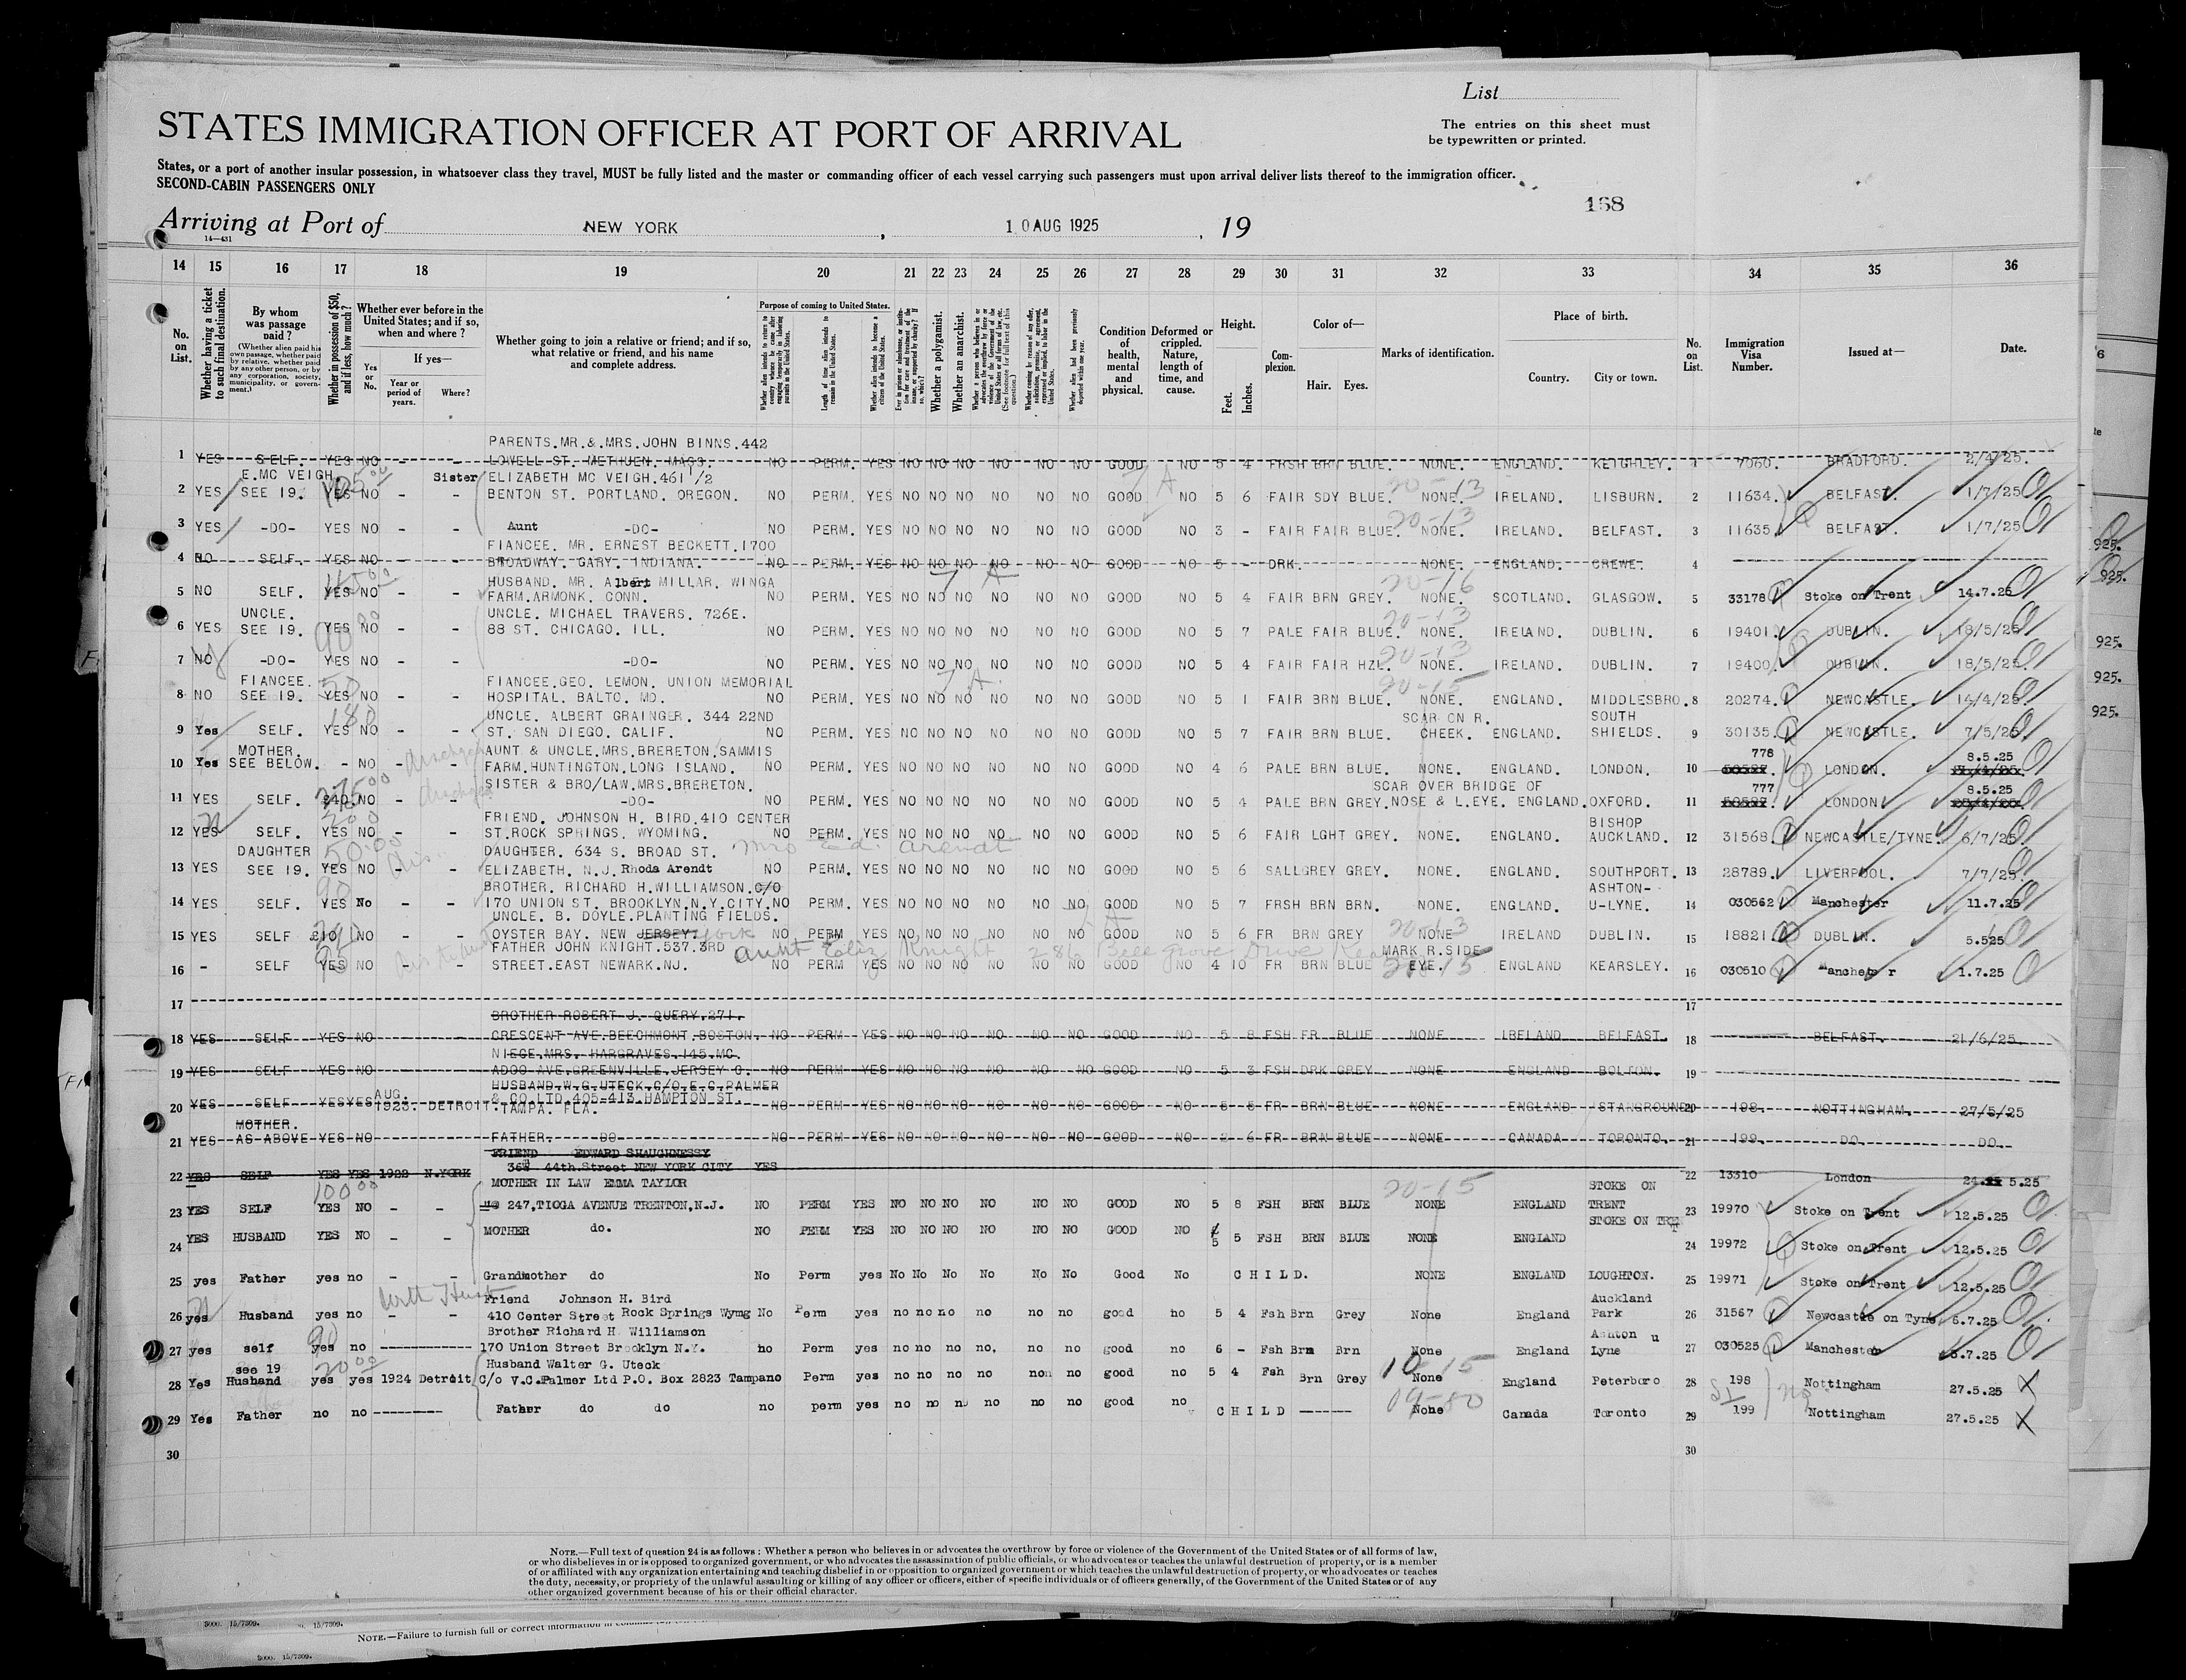 List
STATES IMMIGRATION OFFICER AT PORT OF ARRIVAL
The entries on this sheet must
be typewritten or printed.
States, or a port of another insular possession, in whatsoever class they travel, MUST be fully listed and the master or commanding officer of each vessel carrying such passengers must upon arrival deliver lists thereof to the immigration officer.
SECOND-CABIN PASSENGERS ONLY
168
Arriving at Port of NEW YORK , 10 AUG 1925 , 19
14—431
14 15 16 17 18 19 20 21 22 23 24 25 26 27 28 29 30 31 32 33 34 35 36
No. on List.
Whether having a ticket to such final destination.
By whom was passage paid?
(Whether alien paid his own passage, whether paid by relative, whether paid by any other person, or by any corporation, society, municipality, or government.)
Whether in possession of $50, and if less, how much?
Whether ever before in the United States; and if so, when and where?
Yes or No.
If yes—
Year or period of years.
Where?
Whether going to join a relative or friend; and if so, what relative or friend, and his name and complete address.
Purpose of coming to United States.
Whether alien intends to return to country whence he came after engaging temporarily in laboring pursuits in the United States.
Length of time alien intends to remain in the United States.
Whether alien intends to become a citizen of the United States.
Whether a polygamist.
Whether an anarchist.
Condition of health, mental and physical.
Deformed or crippled. Nature, length of time, and cause.
Height.
Feet. Inches.
Complexion.
Color of—
Hair. Eyes.
Marks of identification.
Place of birth.
Country. City or town.
No. on List.
Immigration Visa Number.
Issued at—
Date.
PARENTS.MR.&.MRS.JOHN BINNS.442
1 YES SELF. YES NO - - LOWELL ST. METHUEN. MASS. NO PERM. YES NO NO NO NO NO NO GOOD NO 5 4 FRSH BRN BLUE. NONE. ENGLAND. KEIGHLEY. 1 7060. BRADFORD. 2/4/25.
E.MC VEIGH. Sister ELIZABETH MC VEIGH.461 1/2
2 YES SEE 19. YES NO - - BENTON ST. PORTLAND. OREGON. NO PERM. YES NO NO NO NO NO NO GOOD NO 5 6 FAIR SDY BLUE. NONE. IRELAND. LISBURN. 2 11634. BELFAST. 1/7/25
3 YES -DO- YES NO - - Aunt -DO- NO PERM. YES NO NO NO NO NO NO GOOD NO 3 - FAIR FAIR BLUE. NONE. IRELAND. BELFAST. 3 11635. BELFAST. 1/7/25
FIANCEE. MR. ERNEST BECKETT.1700
4 NO SELF. YES NO BROADWAY. GARY. INDIANA. NO PERM. YES NO NO NO NO NO NO GOOD NO 5 - DRK. NONE. ENGLAND. CREWE. 4
HUSBAND. MR. Albert MILLAR. WINGA
5 NO SELF. YES NO - - FARM.ARMONK. CONN. NO PERM. YES NO NO NO NO NO NO GOOD NO 5 4 FAIR BRN GREY. NONE. SCOTLAND. GLASGOW. 5 33178 Stoke on Trent 14.7.25
UNCLE. UNCLE. MICHAEL TRAVERS. 726E.
6 YES SEE 19. YES NO - - 88 ST. CHICAGO. ILL. NO PERM. YES NO NO NO NO NO NO GOOD NO 5 7 PALE FAIR BLUE. NONE. IRELAND. DUBLIN. 6 19401. DUBLIN. 18/5/25
7 NO -DO- YES NO - - -DO- NO PERM. YES NO NO NO NO NO NO GOOD NO 5 4 FAIR FAIR HZL. NONE. IRELAND. DUBLIN. 7 19400. DUBLIN. 18/5/25
FIANCEE. FIANCEE.GEO. LEMON. UNION MEMORIAL
8 NO SEE 19. YES NO - - HOSPITAL. BALTO. MD. NO PERM. YES NO NO NO NO NO NO GOOD NO 5 1 FAIR BRN BLUE. NONE. ENGLAND. MIDDLESBRO. 8 20274. NEWCASTLE. 14/4/25
UNCLE. ALBERT GRAINGER. 344 22ND SCAR ON R. SOUTH
9 Yes SELF. YES NO - - ST. SAN DIEGO. CALIF. NO PERM. YES NO NO NO NO NO NO GOOD NO 5 7 FAIR BRN BLUE. CHEEK. ENGLAND. SHIELDS. 9 30135. NEWCASTLE. 7/5/25
MOTHER. AUNT & UNCLE.MRS.BRERETON.SAMMIS 778 8.5.25
10 Yes SEE BELOW. - NO - - FARM.HUNTINGTON.LONG ISLAND. NO PERM. YES NO NO NO NO NO NO GOOD NO 4 6 PALE BRN BLUE. NONE. ENGLAND. LONDON. 10 LONDON.
SISTER & BRO/LAW.MRS.BRERETON. SCAR OVER BRIDGE OF 777 8.5.25
11 YES SELF. 240 NO -DO- NO PERM. YES NO NO NO NO NO NO GOOD NO 5 4 PALE BRN GREY. NOSE & L.EYE. ENGLAND. OXFORD. 11 LONDON
FRIEND. JOHNSON H. BIRD.410 CENTER BISHOP
12 YES SELF. YES NO - - ST.ROCK SPRINGS. WYOMING. NO PERM. YES NO NO NO NO NO NO GOOD NO 5 6 FAIR LGHT GREY. NONE. ENGLAND. AUCKLAND. 12 31568 NEWCASTLE/TYNE. 6/7/25
DAUGHTER DAUGHTER. 634 S. BROAD ST. Mrs Ed. Arendt
13 YES SEE 19. YES NO - - ELIZABETH. N.J. Rhoda Arendt NO PERM. YES NO NO NO NO NO NO GOOD NO 5 6 SALLGREY GREY. NONE. ENGLAND. SOUTHPORT. 13 28789. LIVERPOOL. 7/7/25
BROTHER. RICHARD H.WILLIAMSON.C/O ASHTON-
14 YES SELF. YES No - - 170 UNION ST. BROOKLYN.N.Y.CITY. NO PERM. YES NO NO NO NO NO NO GOOD NO 5 7 FRSH BRN BRN. NONE. ENGLAND. U-LYNE. 14 030562 Manchester 11.7.25
UNCLE. B. DOYLE.PLANTING FIELDS.
15 YES SELF £10 NO - - OYSTER BAY. NEW JERSEY. York NO PERM YES NO NO NO NO NO NO GOOD NO 5 6 FR BRN GREY NONE IRELAND DUBLIN. 15 18821. DUBLIN. 5.525
FATHER JOHN KNIGHT.537.3RD Aunt Eliz Knight 286 Belle grove Drive MARK R.SIDE
16 - SELF YES NO - - STREET.EAST NEWARK.NJ. NO PERM YES NO NO NO NO NO NO GOOD NO 4 10 FR BRN BLUE EYE. ENGLAND KEARSLEY. 16 030510 Manchester 1.7.25
17 17
BROTHER ROBERT J. QUERY.271.
18 YES SELF YES NO CRESCENT AVE.BEECHMONT.BOSTON. NO PERM YES NO NO NO NO NO NO GOOD NO 5 8 FSH FR BLUE NONE IRELAND BELFAST. 18 BELFAST. 21/6/25
NIECE.MRS. HARGRAVES.145.MC.
19 YES SELF YES NO ADOO AVE.GREENVILLE.JERSEY C. NO PERM YES NO NO NO NO NO NO GOOD NO 5 3 FSH DRK GREY NONE ENGLAND BOLTON. 19
HUSBAND.W.G.UTECK.C/O.E.C.PALMER
AUG. & CO.LTD.405-413.HAMPTON ST.
20 YES SELF YES YES 1923. DETROIT. TAMPA. FLA. NO PERM YES NO NO NO NO NO NO GOOD NO 5 5 FR BRN BLUE NONE ENGLAND STANGROUND 20 198. NOTTINGHAM. 27/5/25
MOTHER.
21 YES AS ABOVE YES NO FATHER. DO NO PERM YES NO NO NO NO NO NO GOOD NO 2 6 FR BRN BLUE NONE CANADA TORONTO. 21 199. DO. DO.
FRIEND EDWARD SHAUGHNESSY
22 YES SELF YES YES 1922 N.YORK 44th.Street NEW YORK CITY YES 22 13310 London 24. 5.25
MOTHER IN LAW EMMA TAYLOR STOKE ON
23 YES SELF YES NO - - 247,TIOGA AVENUE TRENTON,N.J. NO PERM YES NO NO NO NO NO NO GOOD NO 5 8 FSH BRN BLUE NONE ENGLAND TRENT 23 19970 Stoke on Trent 12.5.25
24 YES HUSBAND YES NO - - MOTHER do. NO PERM YES NO NO NO NO NO NO GOOD NO 5 5 FSH BRN BLUE NONE ENGLAND STOKE ON TRET 24 19972 Stoke on Trent 12.5.25
25 yes Father yes no - - Grandmother do No Perm yes No No No No No No Good No CHILD. NONE ENGLAND LOUGHTON. 25 19971 Stoke on Trent 12.5.25
With Husb Friend Johnson H. Bird Auckland
26 yes Husband yes no - - 410 Center Street Rock Springs Wymg No Perm yes no no no no no no good no 5 4 Fsh Brn Grey None England Park 26 31567 Newcastle on Tyne 6.7.25
Brother Richard H Williamson Ashton u
27 yes self yes no 170 Union Street Brooklyn N.Y. no Perm yes no no no no. no no good no 6 - Fsh Brn Brn None England Lyne 27 030525 Manchester 3.7.25
see 19 Husband Walter G. Uteck
28 Yes Husband yes yes 1924 Detroit C/o V.C.Palmer Ltd P.O. Box 2823 Tampa no Perm yes no no no no non no good no 5 4 Fsh Brn Grey None England Peterboro 28 198 Nottingham 27.5.25
29 Yes Father no no Father do do no perm yes no no no no no no good no CHILD None Canada Toronto 29 199 Nottingham 27.5.25
30 30
NOTE.—Full text of question 24 is as follows: Whether a person who believes in or advocates the overthrow by force or violence of the Government of the United States or of all forms of law,
or who disbelieves in or is opposed to organized government, or who advocates the assassination of public officials, or who advocates or teaches the unlawful destruction of property, or is a member
of or affiliated with any organization entertaining and teaching disbelief in or opposition to organized government or which teaches the unlawful destruction of property, or who advocates or teaches
the duty, necessity, or propriety of the unlawful assaulting or killing of any officer or officers, either of specific individuals or of officers generally, of the Government of the United States or of any
other organized government because of his or their official character.
5000. 15/7309. 15/7309.
NOTE.—Failure to furnish full or correct information in
5000. 15/7309.